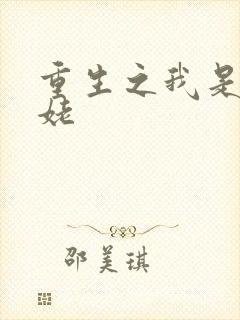 重生之我是
姥
邵美琪